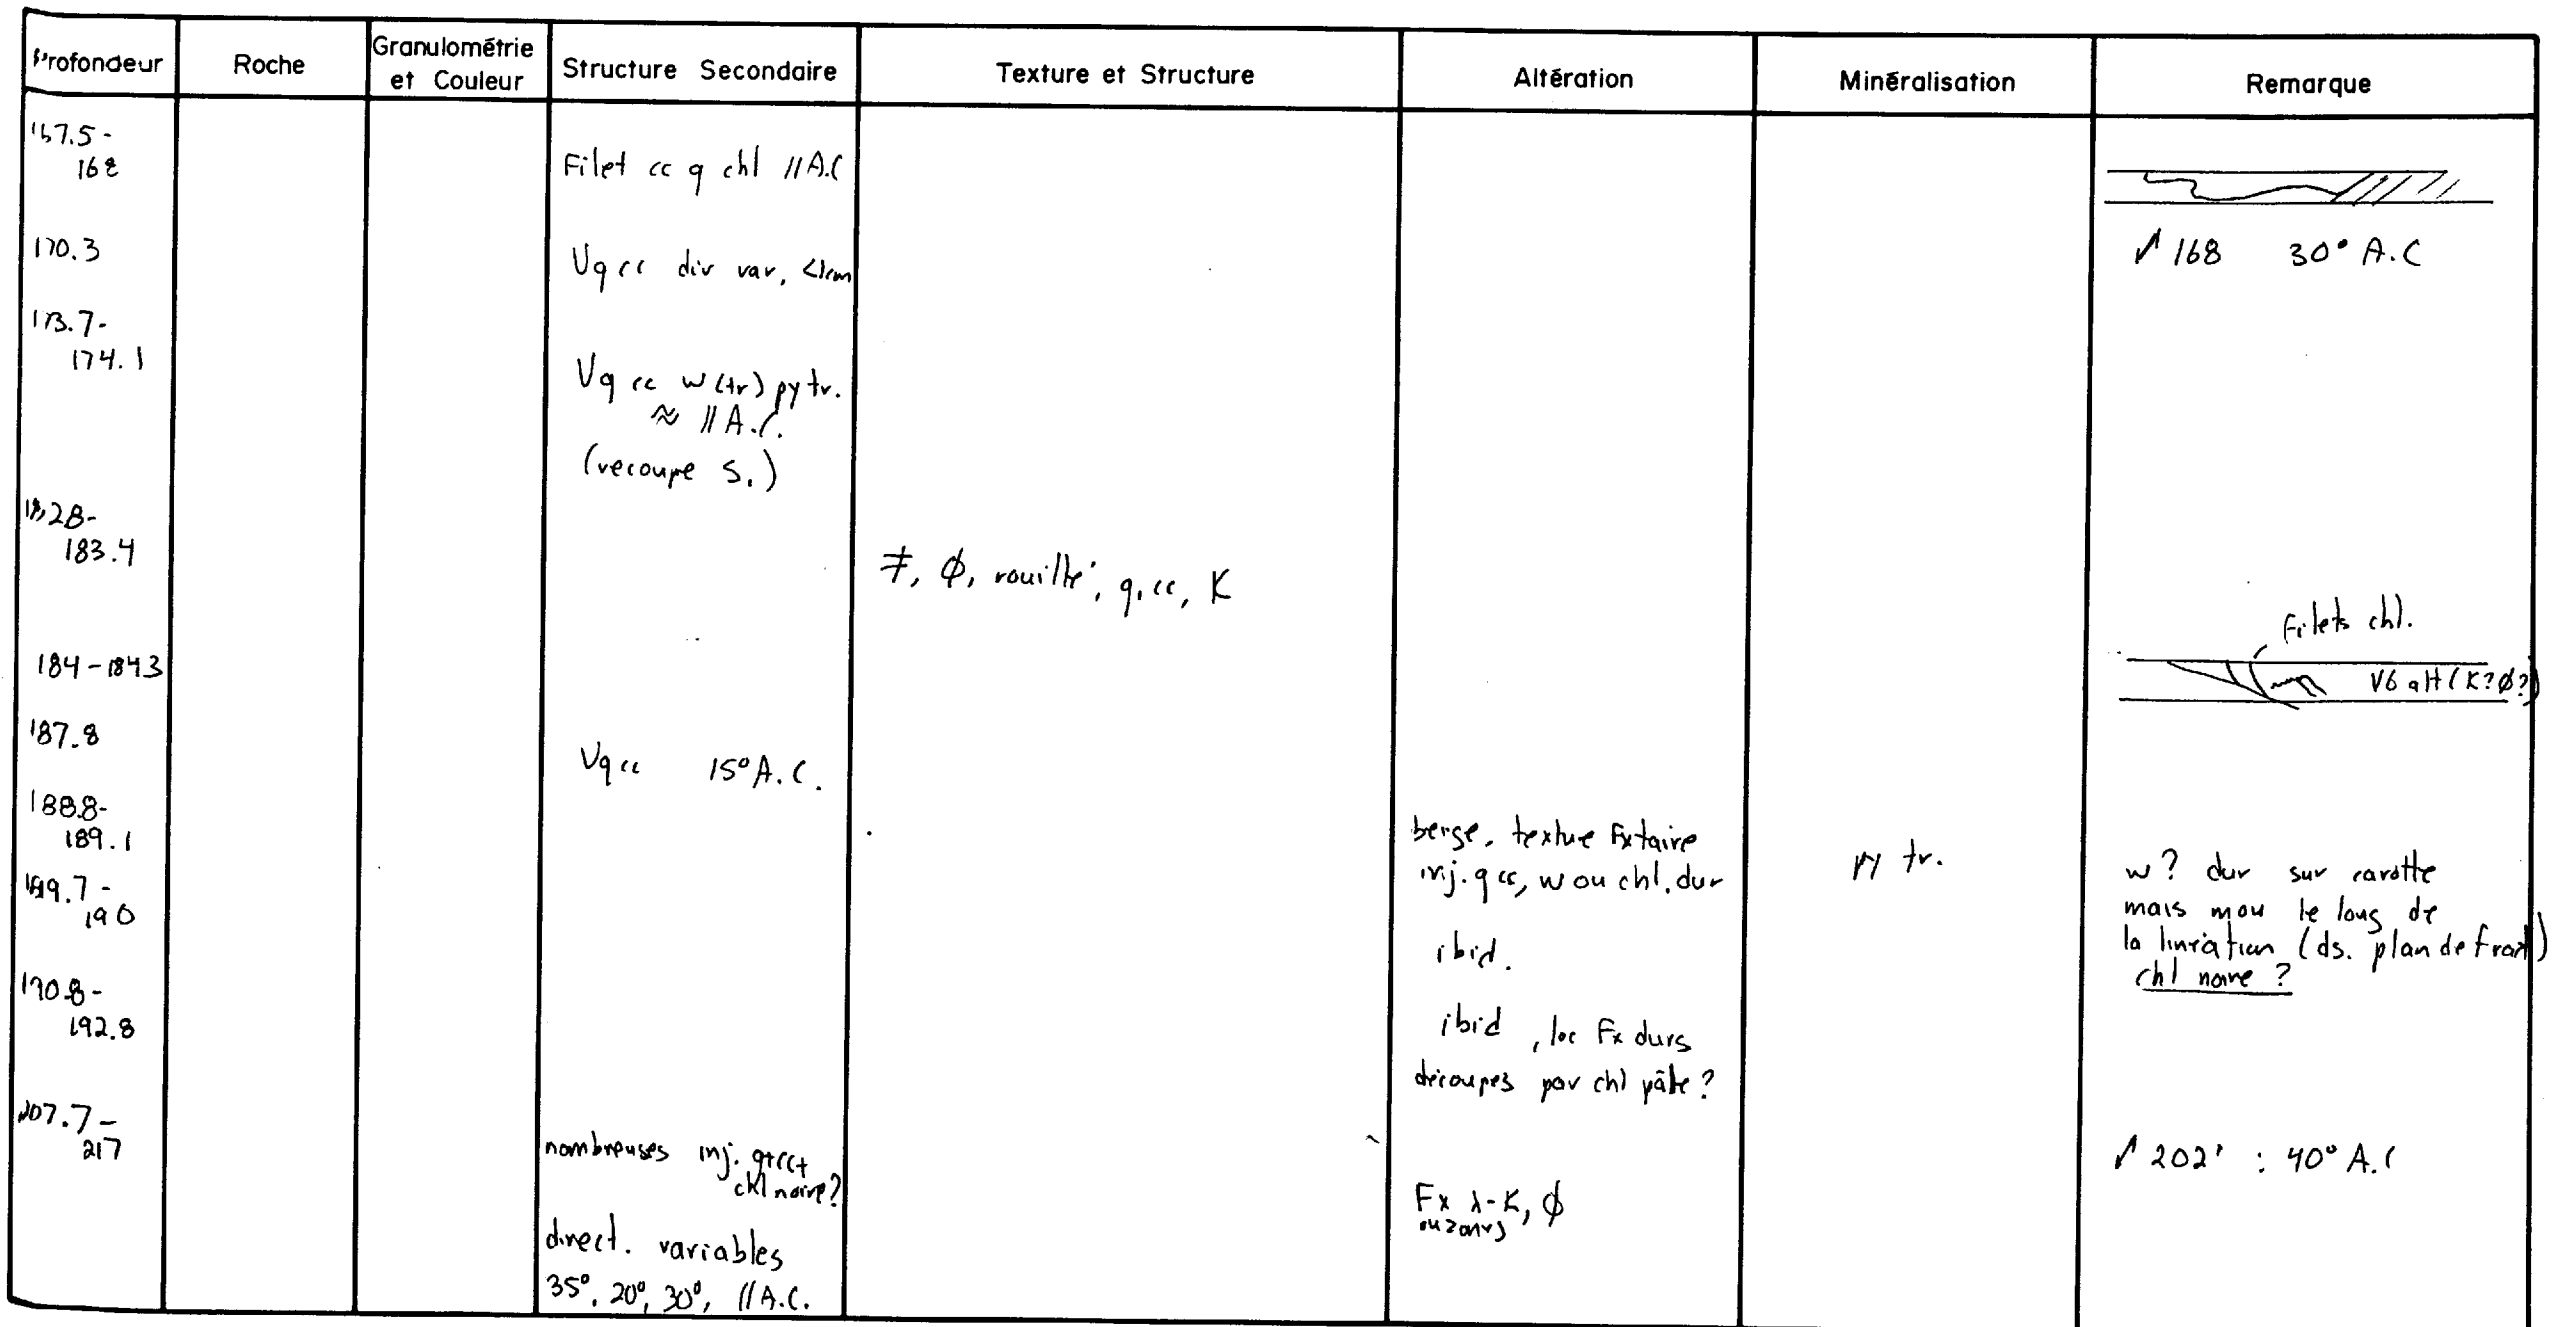 Profondeur
Roche
Granulométrie
et Couleur
Structure Secondaire
Texture et Structure
Altération
Minéralisation
Remarque
167.5-
168
Filet cc q chl //A.C
170.3
Vq cc div var, <1cm
✓ 168 30° A.C
173.7-
174.1
Vq cc w (tr) py tr.
≈ // A.C.
(recoupe S.)
182.8-
183.4
≠, ø, rouillé, q, cc, K
184-184.3
Filets chl.
V6 alt (K? ø?)
187.8
Vq cc 15° A.C.
188.8-
189.1
berge, texture Fxtaire
inj. q cc, w ou chl. dur
py tr.
w? dur sur carotte
mais mou le long de
la linéation (ds. plan de fract)
chl noire?
189.7-
190
ibid.
190.8-
192.8
ibid, loc Fx durs
découpés par chl pâle?
207.7-
217
nombreuses inj. q+cc+
chl noire?
direct. variables
35°, 20°, 30°, //A.C.
Fx λ-K, ø
ou zones
✓ 202' : 40° A.C